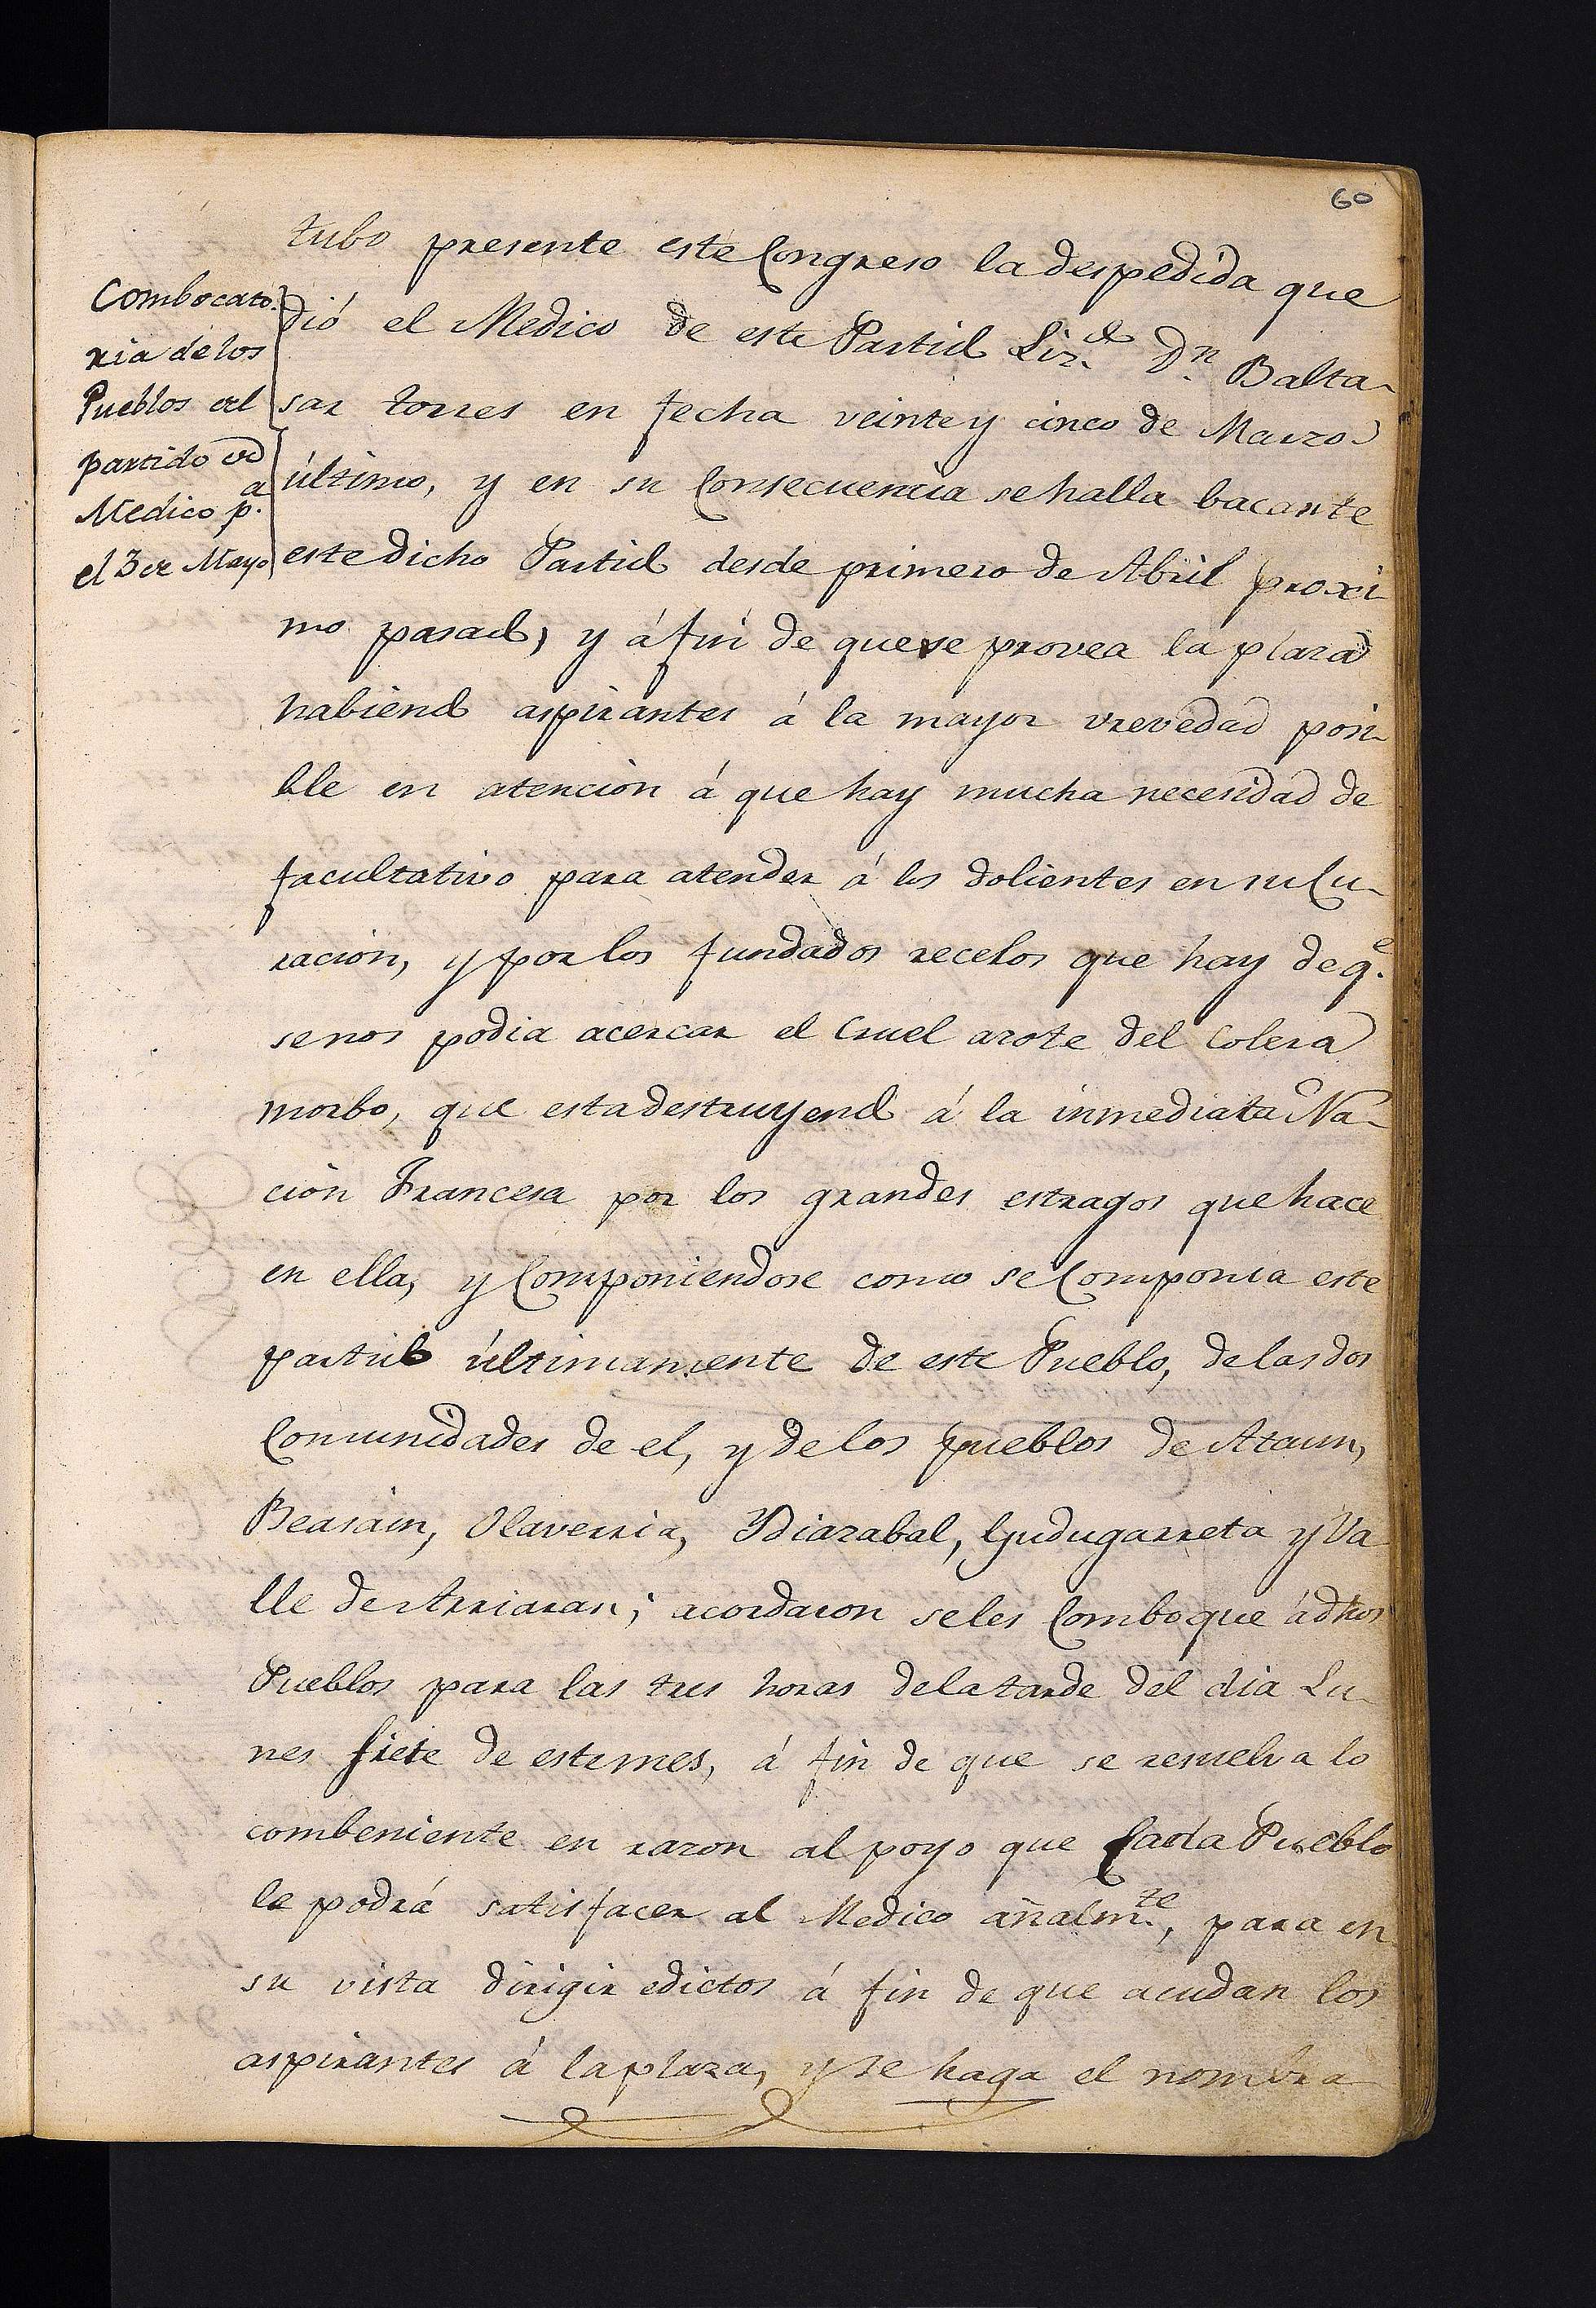 60
Combocato-
ria de los
Pueblos del
partido de
Medico p.a
el 3 de Mayo
tubo presente este Congreso la despedida que
dió el Medico de este Partido Liz.do Dn. Balta-
sar torres en fecha veinte y cinco de Marzo
último, y en su Consecuencia se halla bacante
este dicho Partido desde primero de Abril proxi-
mo pasado, y á fin de que se provea la plaza
habiendo aspirantes á la mayor vrevedad posi-
ble en atencion á que hay mucha necesidad de
facultativo para atender á los dolientes en su Cu-
racion, y por los fundados recelos que hay de q.e
se nos podia acercar el Cruel azote del Colera
morbo, que esta destruyendo á la inmediata Na-
cion Francesa por los grandes estragos que hace
en ella, y Componiendose como se Componia este
partido últimamente de este Pueblo, de las dos
Comunidades de el, y de los pueblos de Ataun,
Beasain, Olaverria, Ydiazabal, Gudugarreta y Va
lle de Arriaran; acordaron se les Comboque á dhos
Pueblos para las tres horas de la tarde del dia Lu-
nes siete de este mes, á fin de que se resuelva lo
combeniente en razon al poyo que Cada Pueblo
le podrá satisfacer al Medico añalm.te, para en
su vista dirigir edictos á fin de que acudan los
aspirantes á la plaza, y se haga el nombra